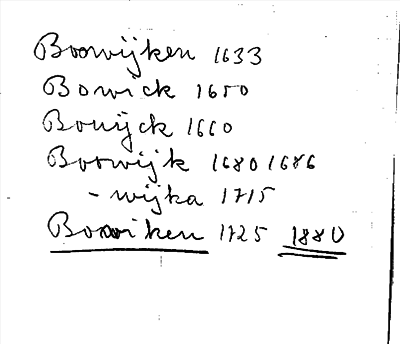 Boowijken 1633
Bowick 1650
Bouijck 1660
Boowijk 1680 1686
- wijka 1715
Boowiken 1725 1880